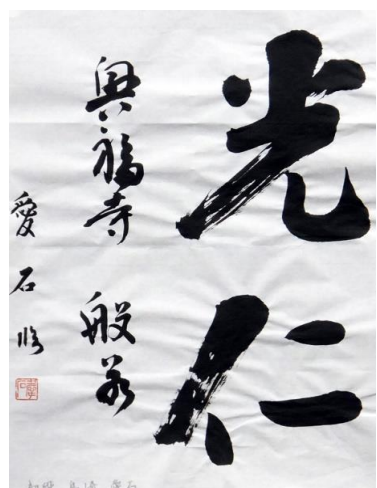 光仁
興福寺 般若
愛石臨